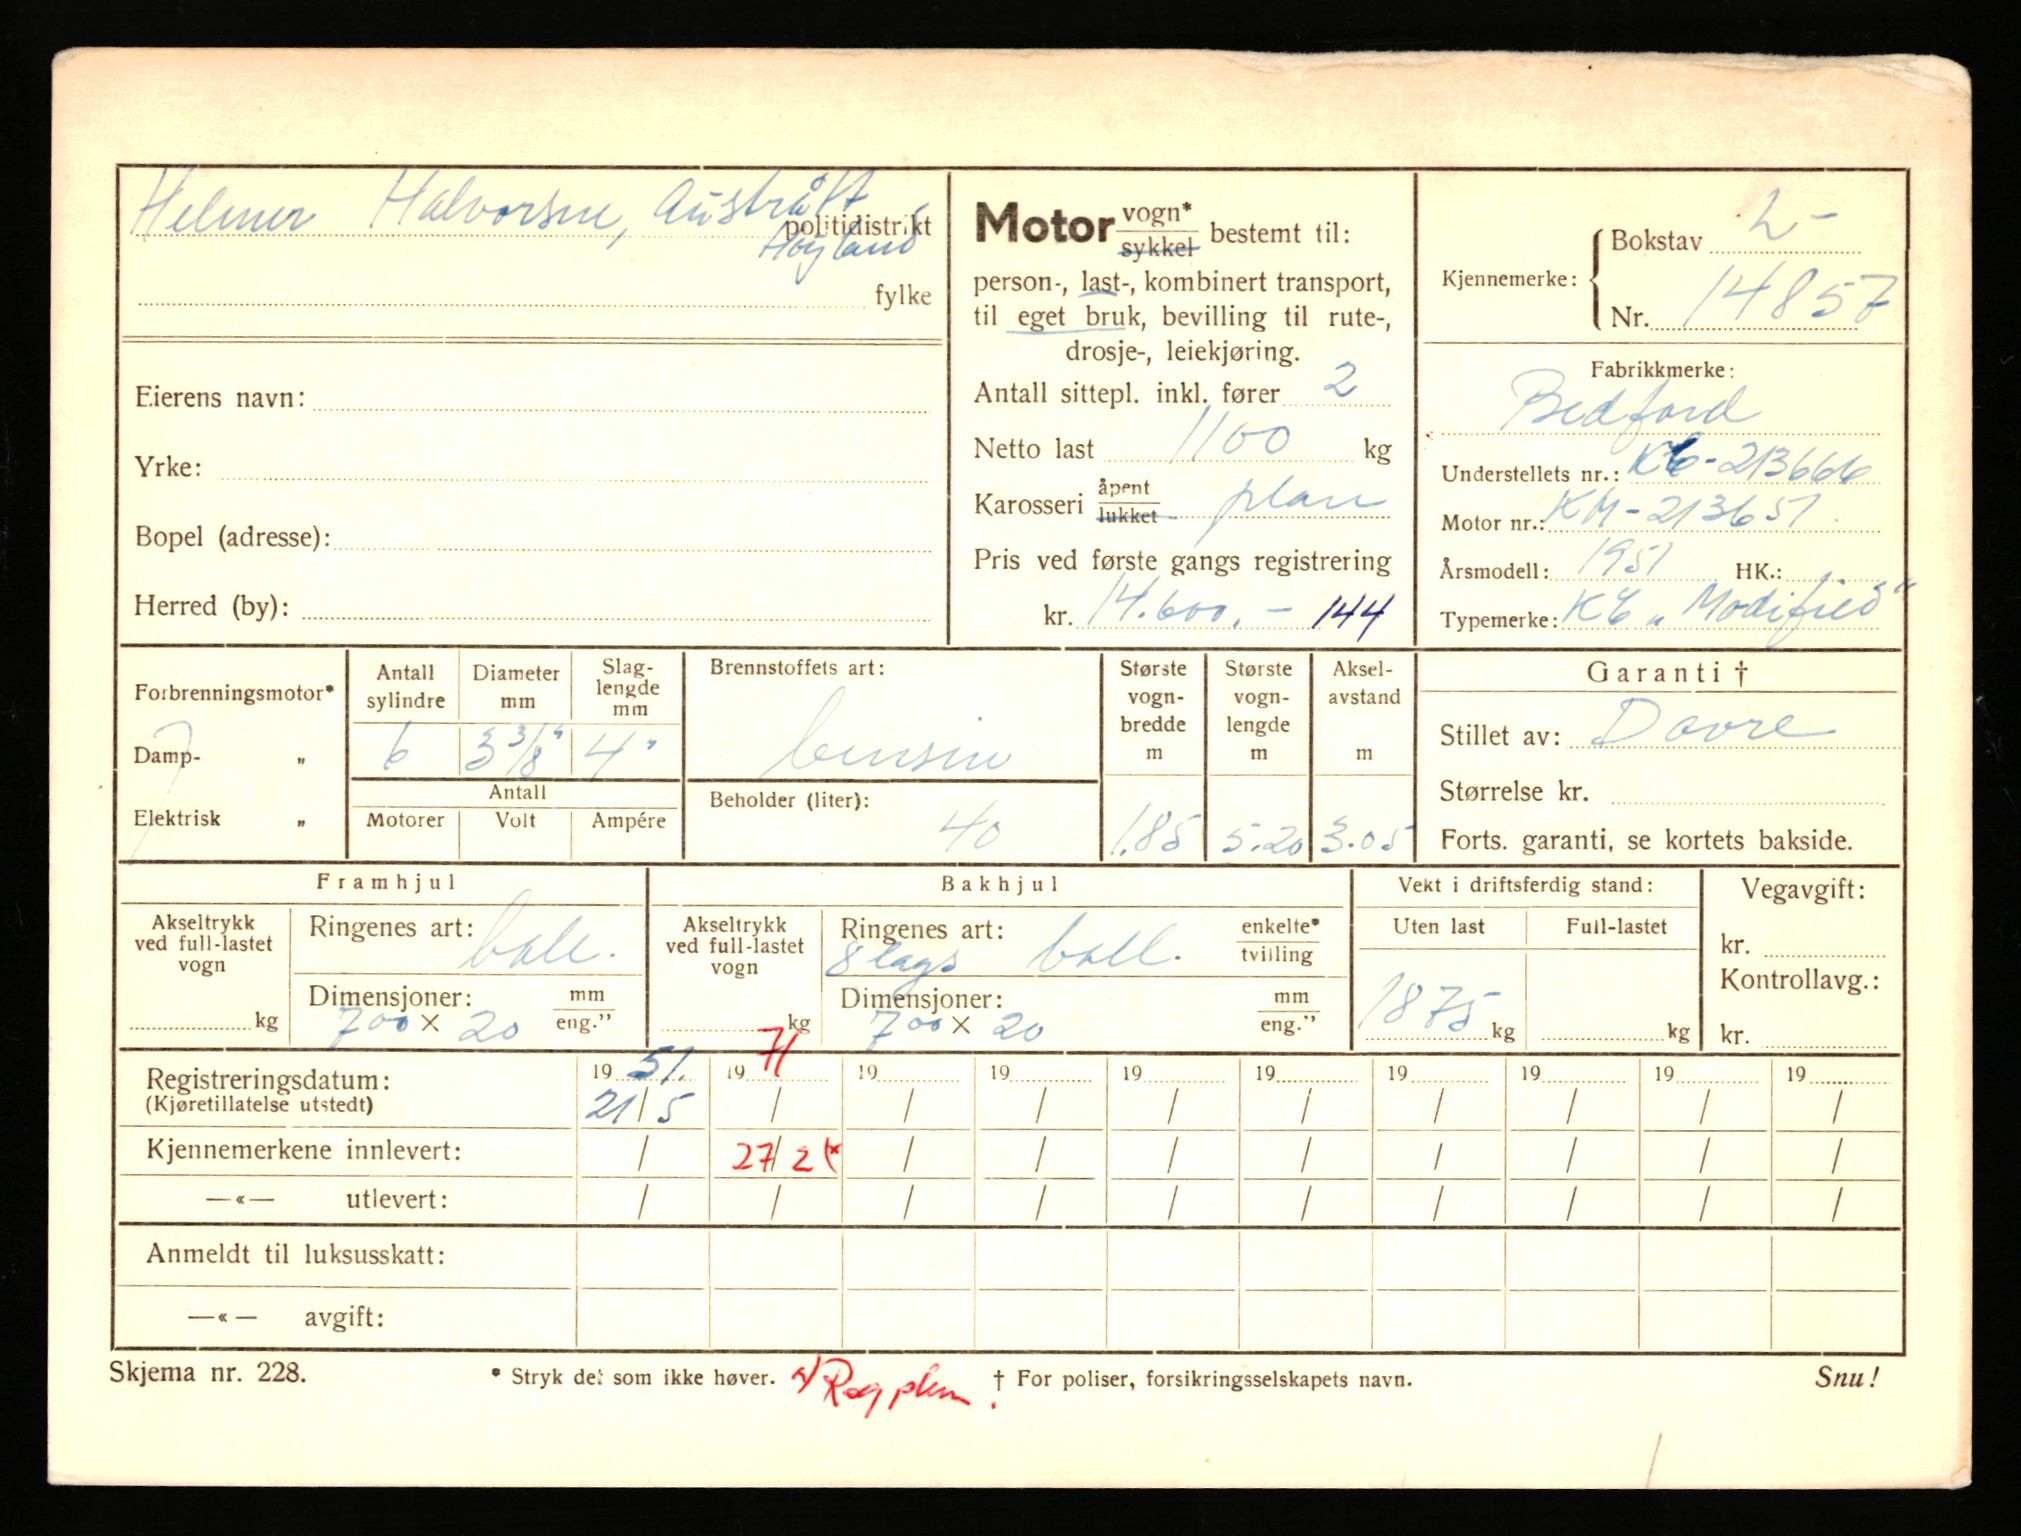 Helmer Halvorsen, Austrått
politidistrikt
Høyland
fylke
Eierens navn:
Yrke:
Bopel (adresse):
Herred (by):
Motor vogn*
sykkel bestemt til:
person-, last-, kombinert transport,
til eget bruk, bevilling til rute-,
drosje-, leiekjøring.
Antall sittepl. inkl. fører 2
Netto last 1100 kg
Karosseri åpent
lukket plan
Pris ved første gangs registrering
kr. 14.600.- 144
Kjennemerke:
Bokstav L-
Nr. 14857
Fabrikkmerke:
Bedford
Understellets nr.: KC-213666
Motor nr.: KM-213651
Årsmodell: 1951 HK.:
Typemerke: KC „Modified"
Forbrenningsmotor*
Damp- „
Elektrisk „
Antall sylindre
6
Diameter mm
3 3/8"
Slag-
lengde
mm
4"
Antall
Motorer Volt Ampére
Brennstoffets art:
bensin
Beholder (liter):
40
Største
vogn-
bredde
m
1.85
Største
vogn-
lengde
m
5.20
Aksel-
avstand
m
3.05
Garanti †
Stillet av: Dovre
Størrelse kr.
Forts. garanti, se kortets bakside.
Framhjul
Akseltrykk
ved full-lastet
vogn
kg
Ringenes art:
ball.
Dimensjoner: mm
eng."
7 00 × 20
Bakhjul
Akseltrykk
ved full-lastet
vogn
kg
Ringenes art: enkelte*
tvilling
8 lags ball.
Dimensjoner: mm
eng."
7 00 × 20
Vekt i driftsferdig stand:
Uten last Full-lastet
1875 kg kg
Vegavgift:
kr.
Kontrollavg.:
kr.
Registreringsdatum: 19 51. 19 71 19 19 19 19 19 19 19 19
(Kjøretillatelse utstedt) 21/5 / / / / / / / / /
Kjennemerkene innlevert: / 27/2 (* / / / / / / / /
—«— utlevert: / / / / / / / / / /
Anmeldt til luksusskatt:
—«— avgift:
Skjema nr. 228. * Stryk det som ikke høver. † For poliser, forsikringsselskapets navn. Snu!